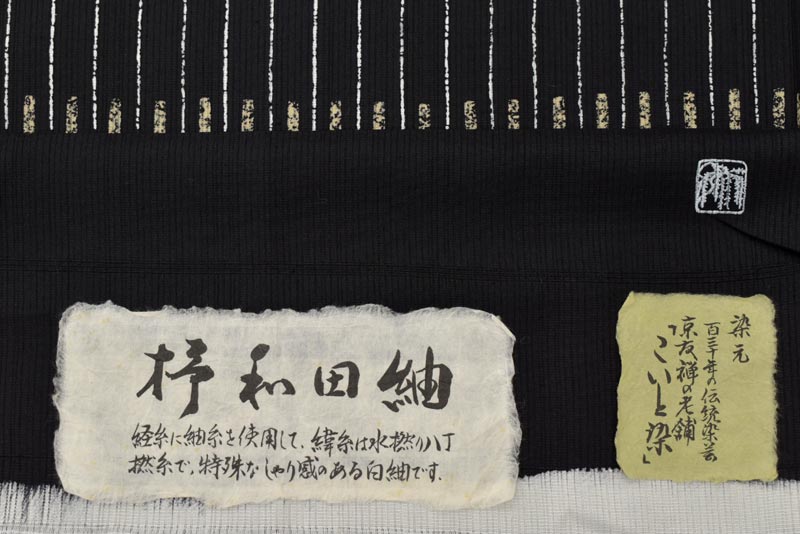 杼和田紬
経糸に紬糸を使用して、緯糸は水撚り八丁
撚糸で、特殊なしゃり感のある白紬です。
染元
百三十年の伝統染芸
京友禅の老舗
「こいと染」